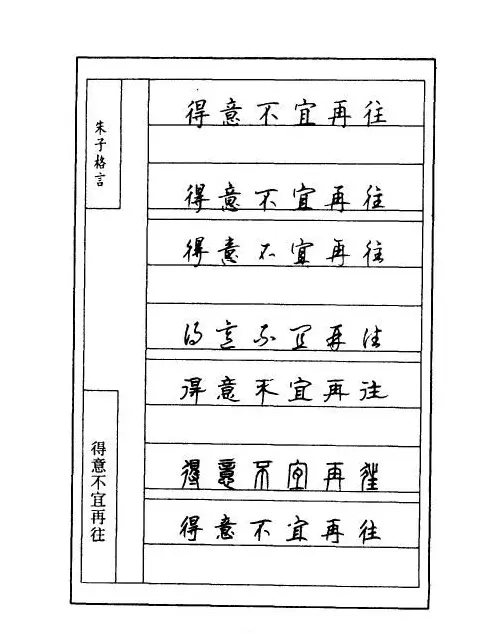 朱子格言
得意不宜再往
得意不宜再往
得意不宜再往
得意不宜再往
得意不宜再往
得意不宜再往
得意不宜再往
得意不宜再往